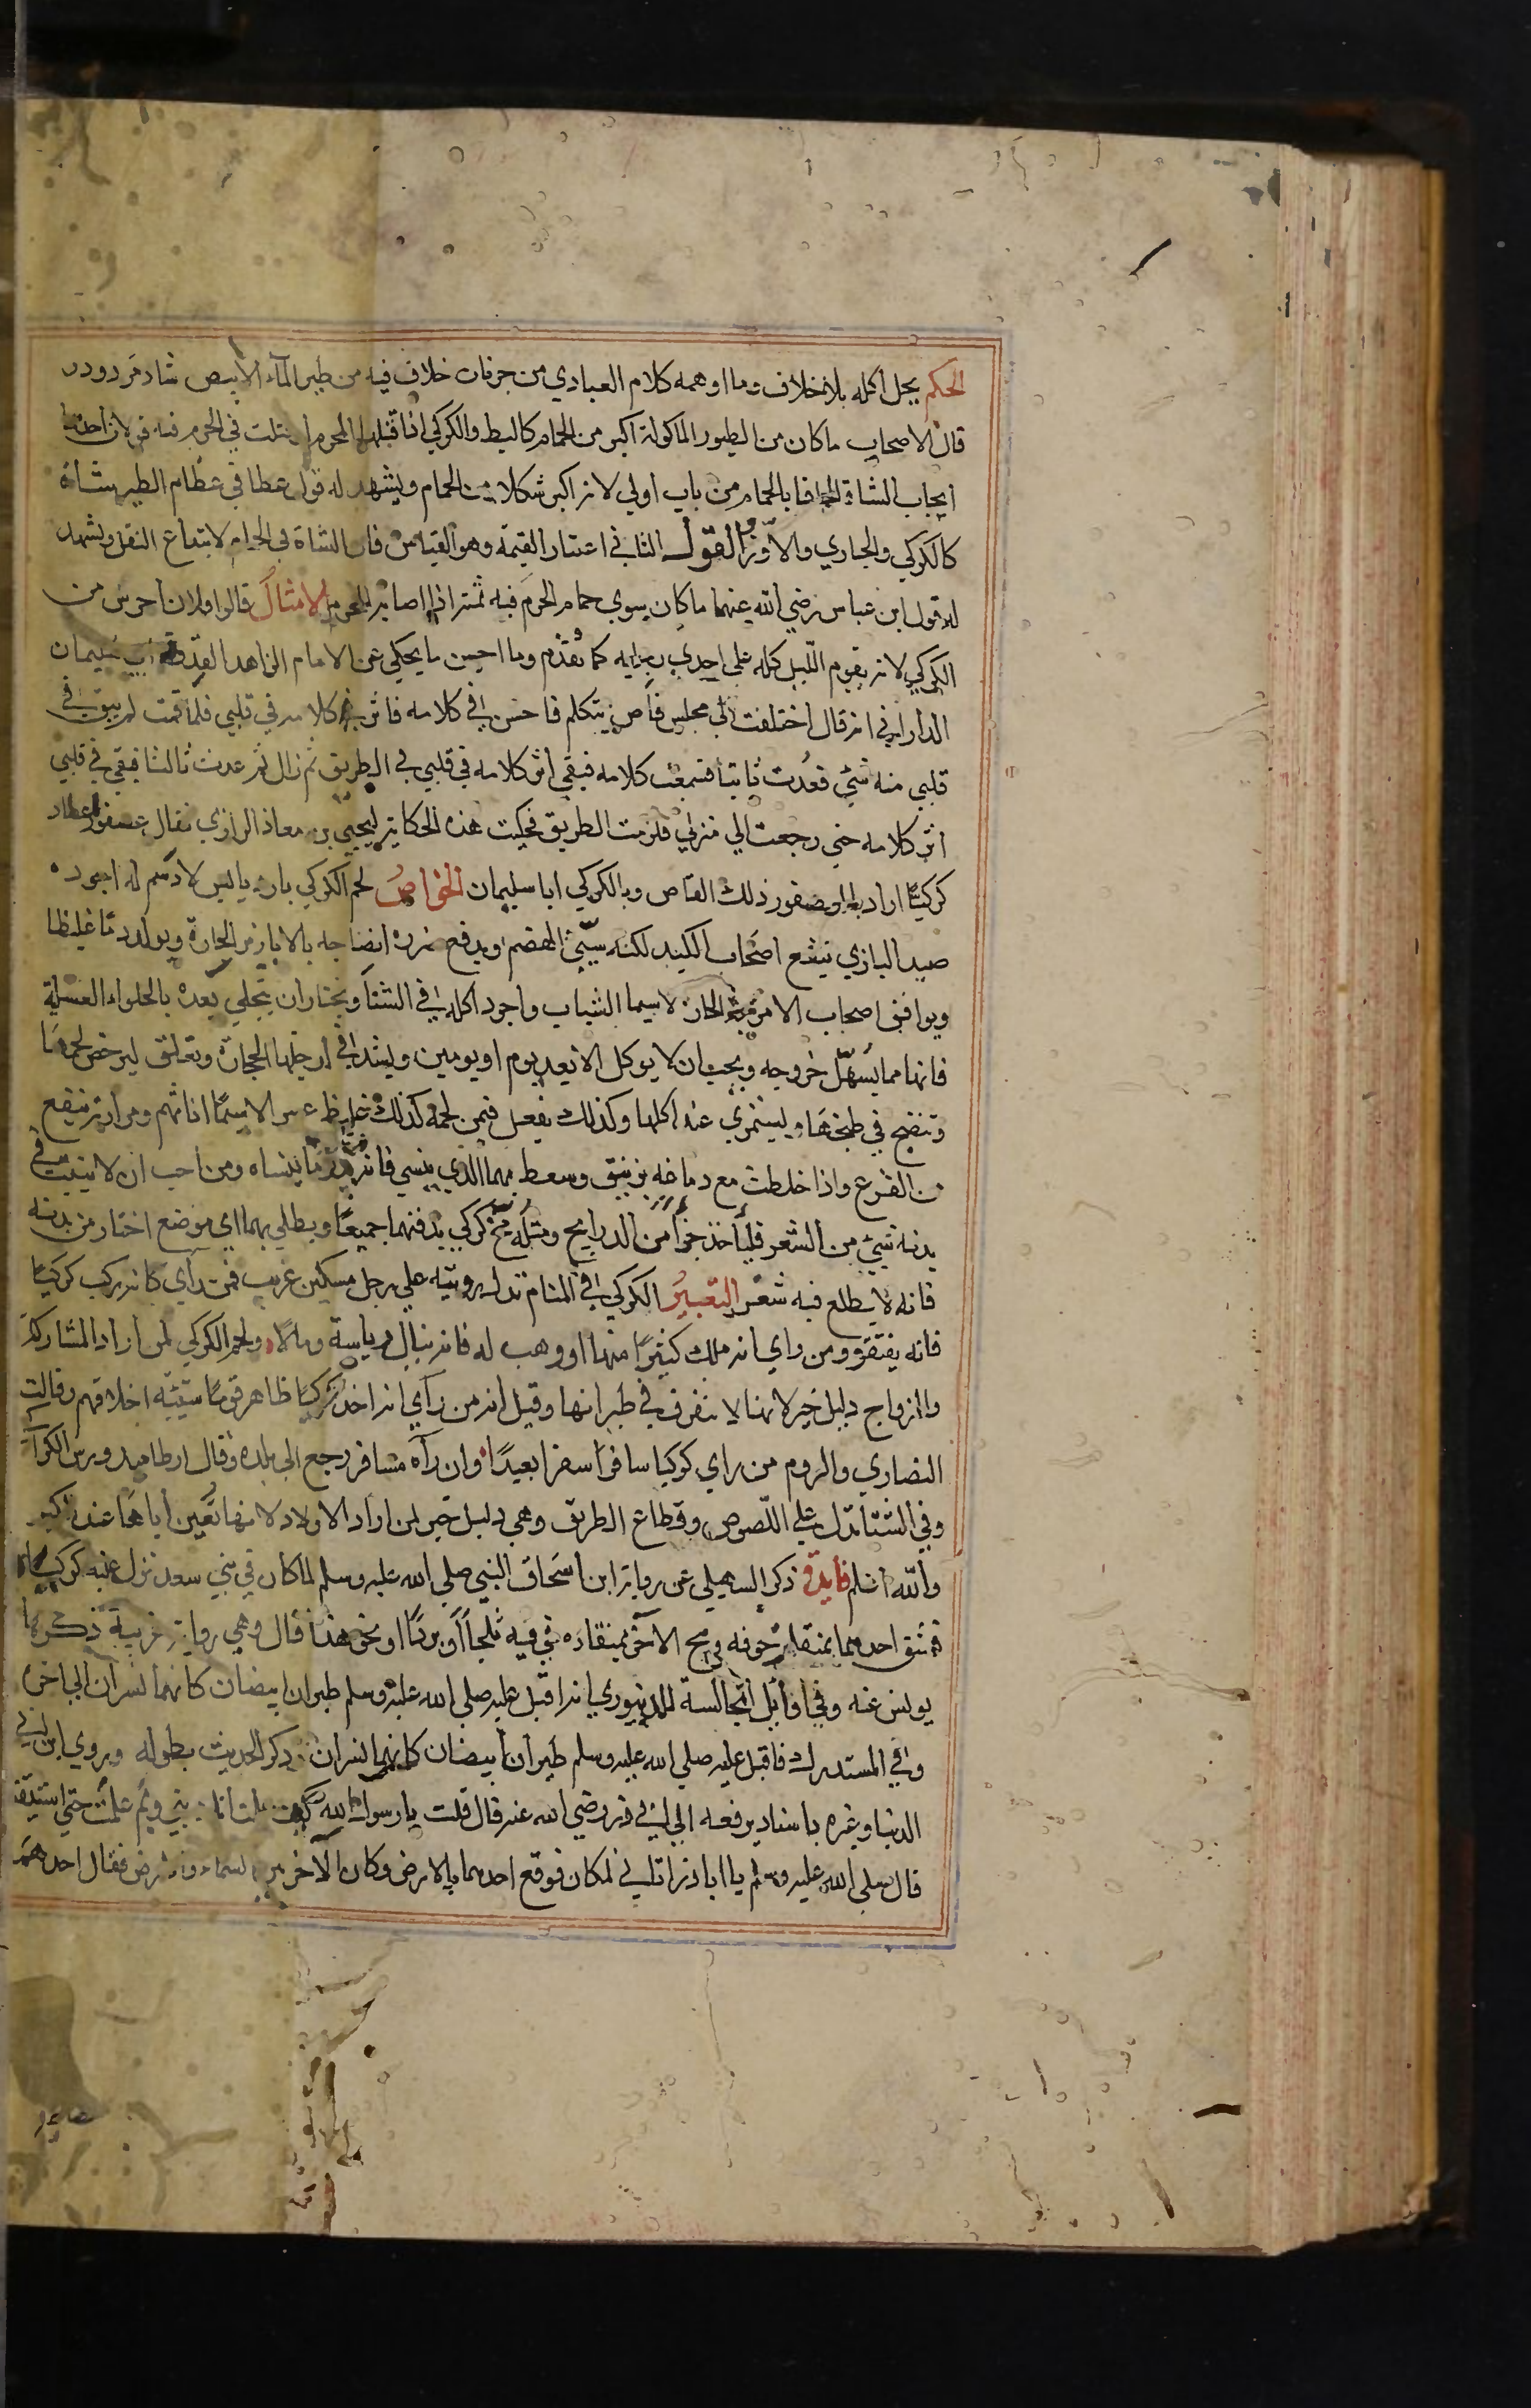 الحكم يحل اكله بلا خلاف وما اوهمه كلام العبادي من جريان خلاف فيه من طير الماء الابيض شاذ مردود
قال الاصحاب ما كان من الطيور الماكولة اكبر من الحمام كالبط والكركي اذا قتله المحرم او قتلت في الحرم فيه قولان احدهما
ايجاب الشاة الحاقا بالحمام من باب اولي لانه اكبر شكلا من الحمام ويشهد له قول عطا في عظام الطير شاة
كالكركي والحباري والاوز القول الثاني اعتبار القيمة وهو القياس فان الشاة في الحمام لاتباع النقل ويشهد
له قول ابن عباس رضي الله عنهما ما كان سوي حمام الحرم فيه ثمنه اذا اصابه المحرم الامثال قالوا فلان احرس من
الكركي لانه يقوم الليل كله علي احدي رجليه كما تقدم وما احسن ما يحكي عن الامام الزاهد القدوة ابي سليمان
الداراني انه قال اختلفت الي مجلس قاص يتكلم فاحسن في كلامه فاثر كلامه في قلبي فلما قمت لم يبق في
قلبي منه شئ فعدت ثانيا فسمعت كلامه فبقي اثر كلامه في قلبي في الطريق ثم زال ثم عدت ثالثا فبقي في قلبي
اثر كلامه حتي رجعت الي منزلي فلزمت الطريق فحكيت هذه الحكاية ليحيي بن معاذ الرازي فقال عصفور اصطاد
كركيا اراد بالعصفور ذلك القاص وبالكركي ابا سليمان الخواص لحم الكركي بارد يابس لا دسم له اجوده
صيد البازي ينفع اصحاب الكيد لكنه سيئ الهضم ويدفع ضرره انضاجه بالابازير الحارة ويولد دما غليظا
ويوافق اصحاب الامزجة الحارة لاسيما الشباب واجود اكله في الشتا ويختار ان يتحلي بعده بالحلواء العسلية
فانها مما يسهل خروجه ويجب ان لا يوكل الا بعد يوم او يومين ويشد في ارجلها الحجارة وتعلق ليرخص لحمها
وتنضج في طبخها ويستمري عند اكلها وكذلك يفعل فيمن لحمه كذلك غليظ عسر لاسيما اناثهم ومرارته تنفع
من القرع واذا خلطت مع دماغه بزنبق وسعط بهما الذي ينسي فانه يذكر ما ينساه ومن احب ان لا ينبت في
بدنه شئ من الشعر فلياخذ جزأ من الدراريح ومثله مخ كركي يدفنهما جميعا ويطلي بهما اي موضع اختار من بدنه
فانه لا يطلع فيه شعر التعبير الكركي في المنام تدل رويته علي رجل مسكين غريب فمن راي كانه ركب كركيا
فانه يفتقر ومن راي انه ملك كثيرا منها او وهب له فانه ينال رياسة ومالا ولحم الكركي لمن اراد المشاركة
والزواج دليل خير لانها لا تفرق في طيرانها وقيل انه من راي انه اخذ كركيا ظاهر قوما سيئة اخلاقهم وقالت
النصاري والروم من راي كركيا سافر سفرا بعيدا وان راه مسافر رجع الي بلده وقال ارطاميدورس الكراكي
وفي الشتا تدل علي اللصوص وقطاع الطريق وهي دليل خير لمن اراد الاولاد لانها تعين اباها عند الكبر
والله اعلم فايدة ذكر السهيلي عن رواية ابن اسحاق النبي صلي الله عليه وسلم لما كان في بني سعد نزل عليه كركيان
فشق احدهما بمنقاره جوفه ومج الاخر بمنقاده في فيه ثلجا او بردا او نحو هذا قال وهي رواية غريبة ذكرها
يونس عنه وفي اوائل المجالسة للدينوري انه اقبل عليه صلي الله عليه وسلم طيران ابيضان كانهما نسران الي اخره
وفي المستدرك فاقبل عليه صلي الله عليه وسلم طيران ابيضان كانهما نسران ذكر الحديث بطوله وروي ابن ابي
الدنيا وغيره باسناد يرفعه الي ابي ذر رضي الله عنه قال قلت يا رسول الله كيف علمت انك نبي وبم علمت حتي استيقنت
قال صلي الله عليه وسلم يا ابا ذر اتاني ملكان فوقع احدهما بالارض وكان الاخر بين السماء والارض فقال احدهم